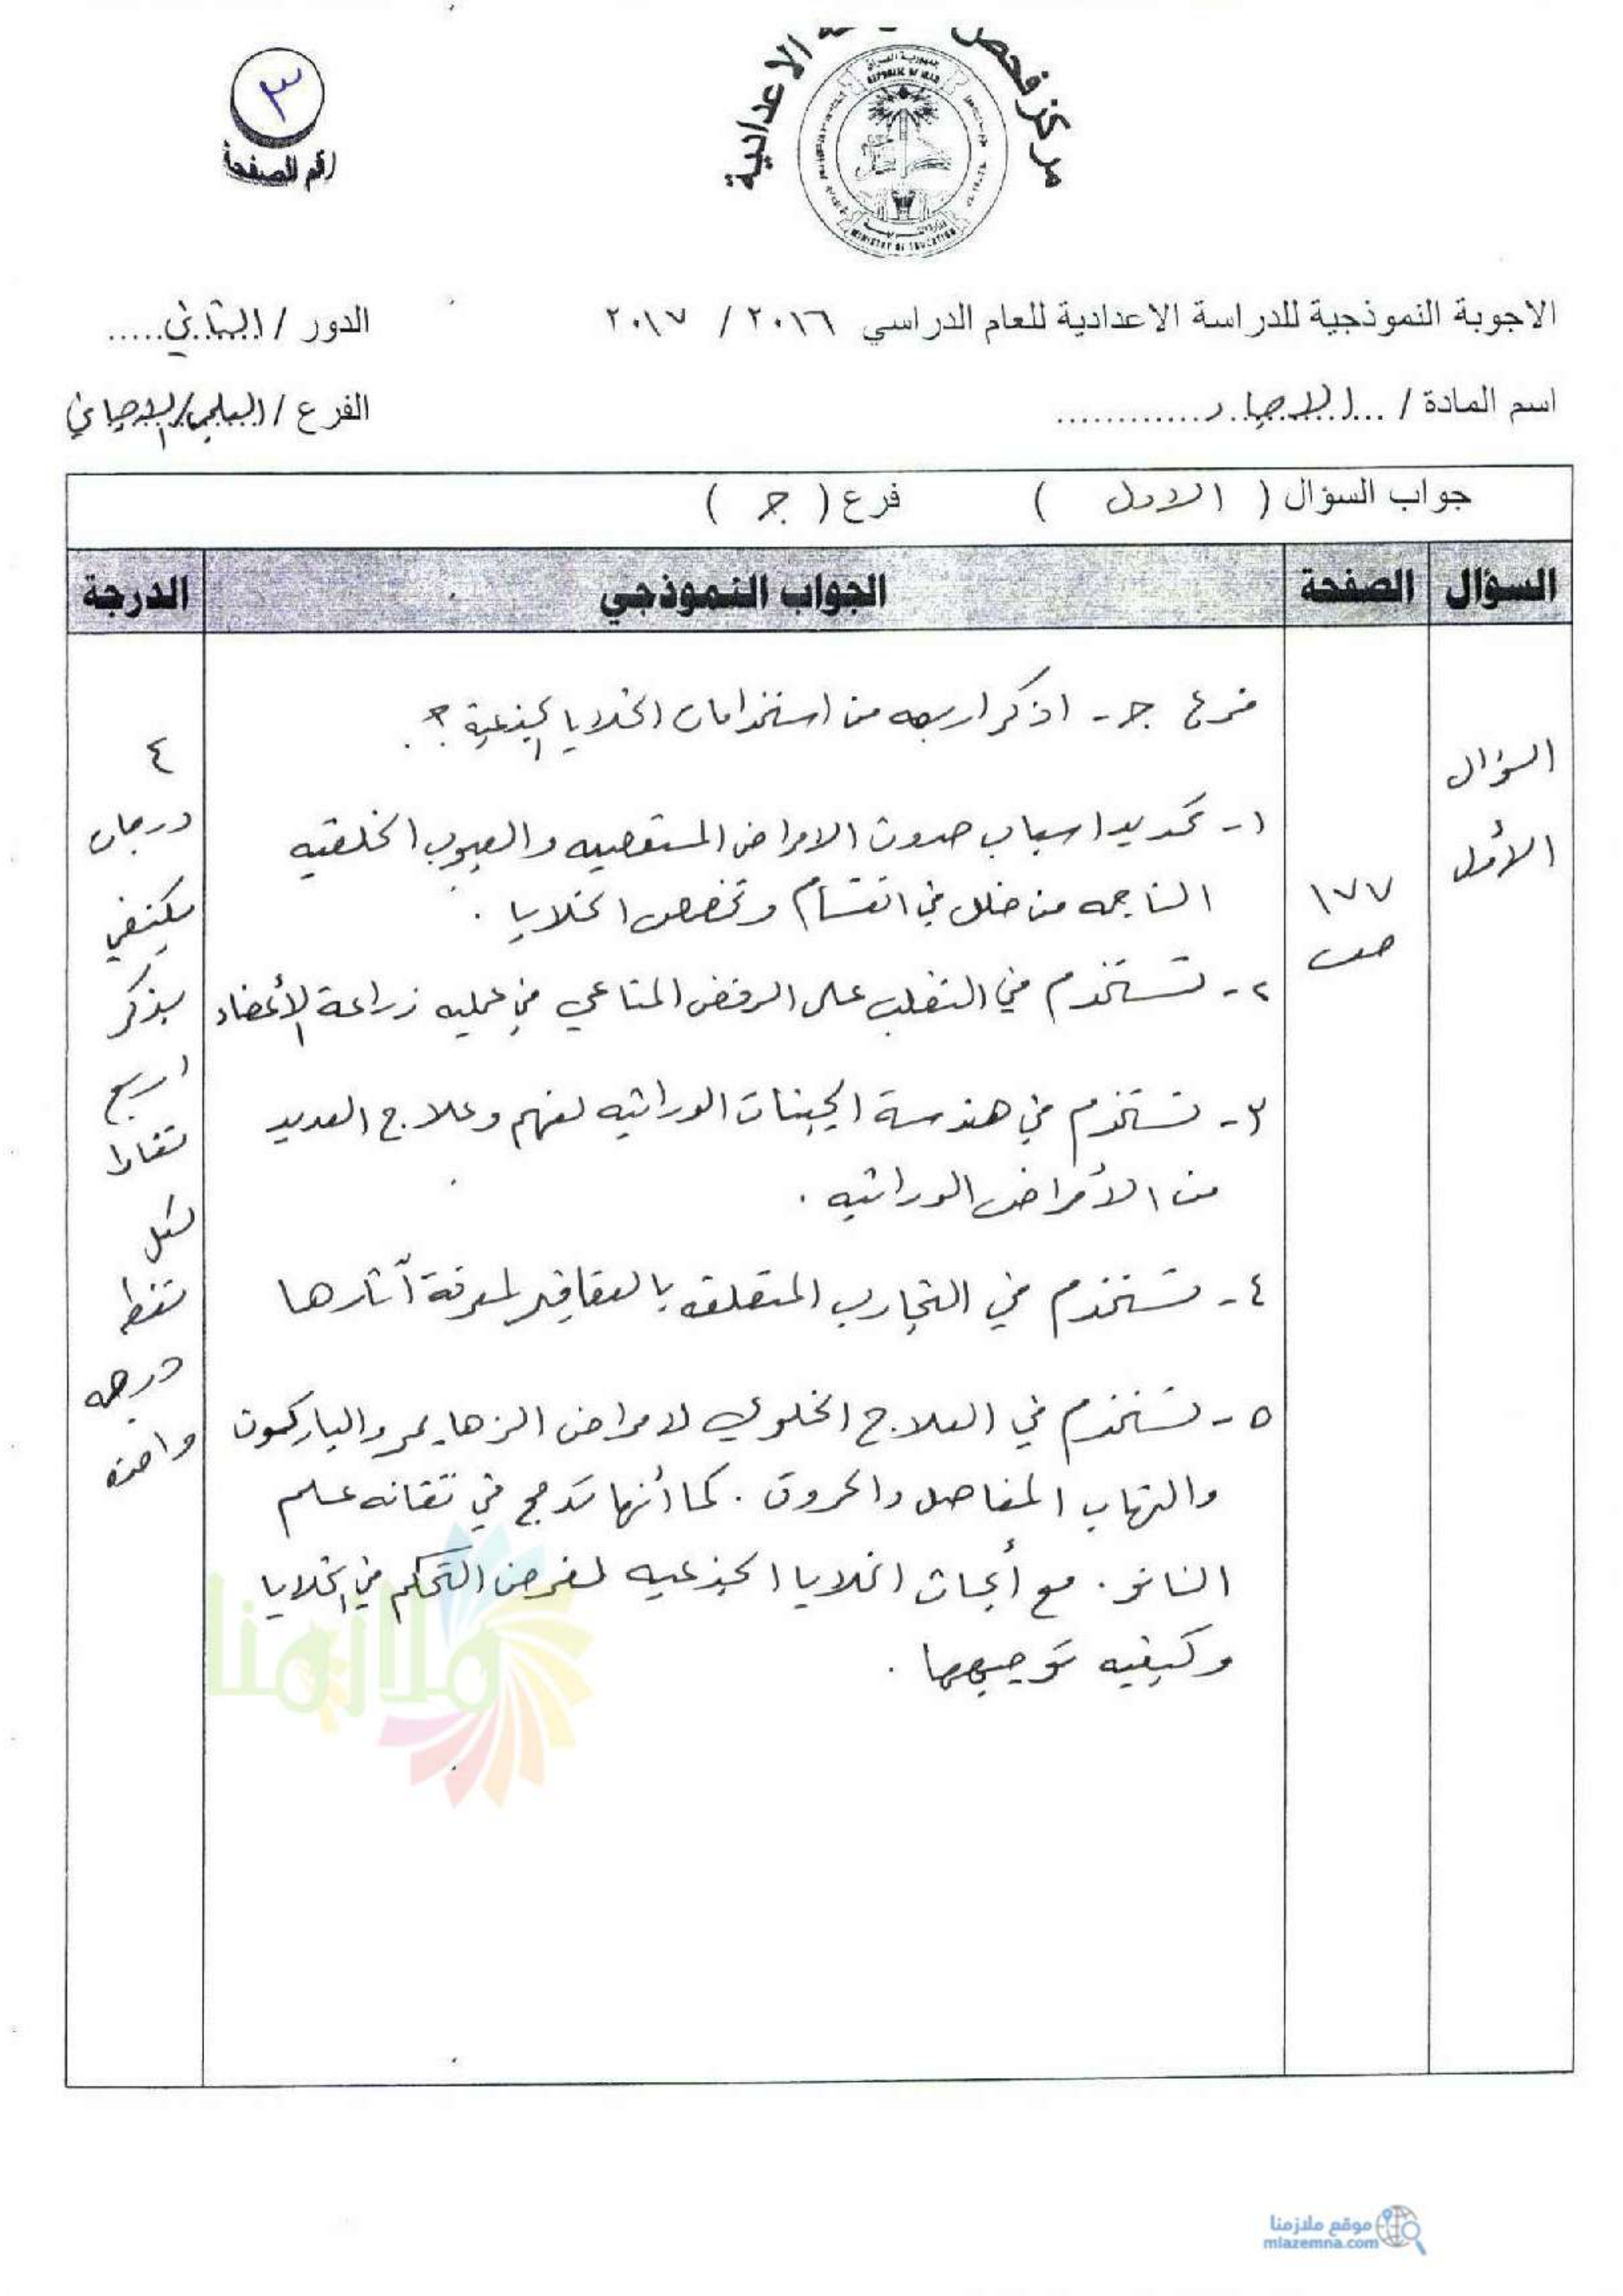 ٣
رقم الصفحة
مركز فحص الاعدادية
REPUBLIC OF IRAQ
MINISTRY OF EDUCATION
الاجوبة النموذجية للدراسة الاعدادية للعام الدراسي ٢٠١٦ / ٢٠١٧
الدور / الثاني.....
اسم المادة / ...الاحياء............
الفرع / العلمي/الاحيائي
جواب السؤال ( الاول ) فرع ( جـ )
السؤال الصفحة الجواب النموذجي الدرجة
السؤال
الأول
١٧٧
ص
فرع جـ - اذكر اربعه من استخدامات الخلايا الجذعية ؟
١- تحديد اسباب حدوث الامراض المستعصيه والعيوب الخلقيه
الناجمه من خلل في انقسام وتخصص الخلايا .
٢- تستخدم في التغلب على الرفض المناعي في عمليه زراعة الأعضاء
٣- تستخدم في هندسة الجينات الوراثيه لفهم وعلاج العديد
من الأمراض الوراثيه .
٤- تستخدم في التجارب المتعلقه بالعقاقير لمعرفة آثارها
٥- تستخدم في العلاج الخلوي لامراض الزهايمر والباركسون
والتهاب المفاصل والحروق . كما أنها تدمج في تقانه علم
النانو . مع أبحاث الخلايا الجذعيه لغرض التحكم في الخلايا
وكيفيه توجيهها .
٤
درجات
يكتفي
بذكر
اربع
نقاط
لكل
نقطه
درجه
واحده
ملازمنا
موقع ملازمنا
mlazemna.com